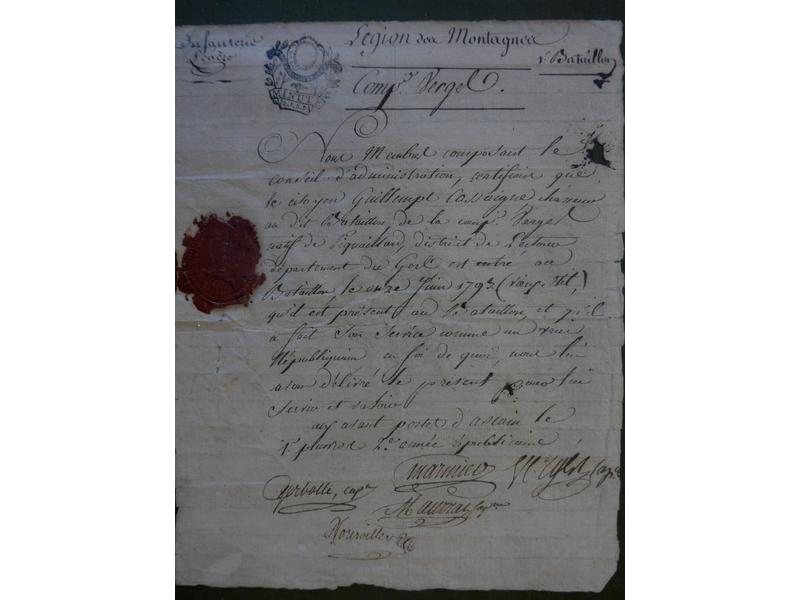 Infanterie
Légère
Légion des Montagnes
1r Bataillon
MINUT
Compie Vergel.
Nous Membres composant le
conseil d'administration, certifions que
le citoyen Guillempt Cassaigne chasseur
au dit Bataillon, de la compe Vergel
natif de district de Lectoure
département du Gers est entré au
Bataillon le onze Juin 1793 (vieux stil,)
qu'il est présent au Bataillon, et qu'il
a fait son service comme un vrai
Républiquain en foi de quoi, nous lui
avons délivré le présent pour lui
servir et valoir
aux avant postes d'ascain le
1r pluviose 2e année républicaine
gerbolle, cape